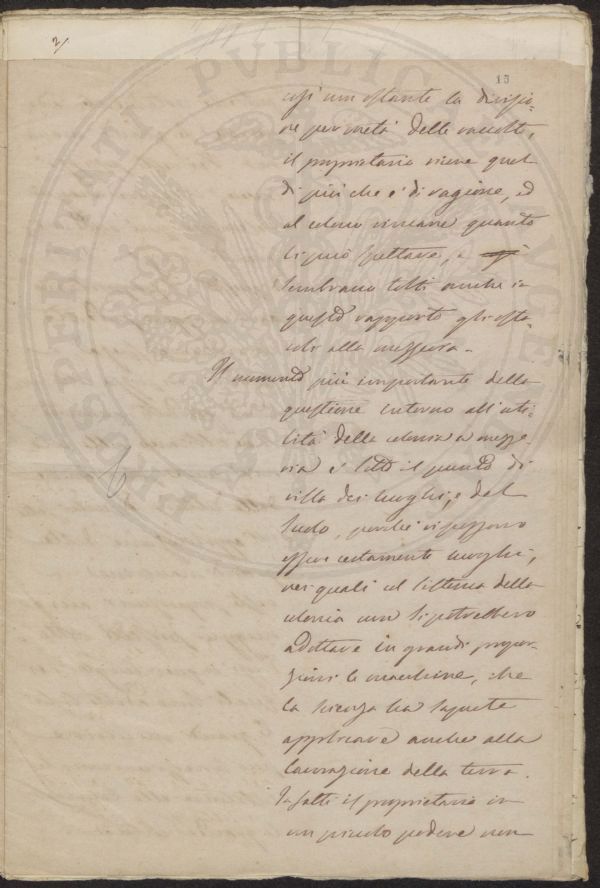 2/
15
così non ostante la divisio-
ne per metà delle raccolte,
il proprietario riceve quel
di più che è di ragione, ed
al colono rimane quanto
li può spettare, e
sembrano tolti anche in
questo rapporto gli osta-
coli alla mezzeria -
Il momento più importante della
questione intorno all'uti-
lità della colonia a mezze-
ria è sotto il punto di
vista dei luoghi, e del
suolo, perché vi possono
essere certamente luoghi,
nei quali col sistema della
colonia non si potrebbero
adottare in grandi propor-
zioni le macchine, che
la scienza ha sapute
applicare anche alla
lavorazione della terra.
Infatti il proprietario in
un piccolo podere non
PROSPERITATI PUBLICAE AUGENDAE